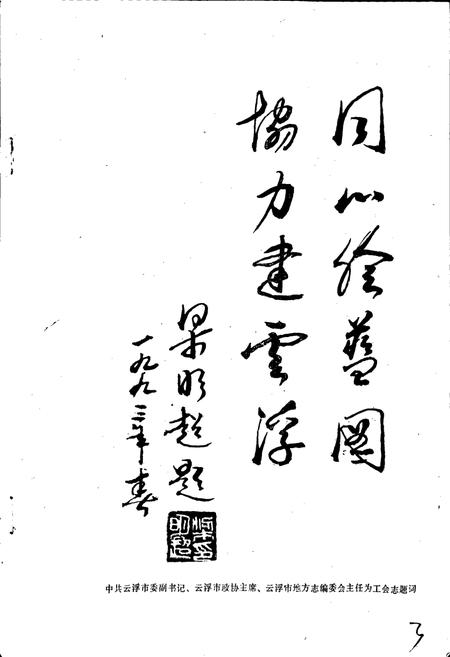 同心绘蓝图
協力建雲浮
梁明超題
一九九三年春
中共云浮市委副书记、云浮市政协主席、云浮市地方志编委会主任为工会志题词
3